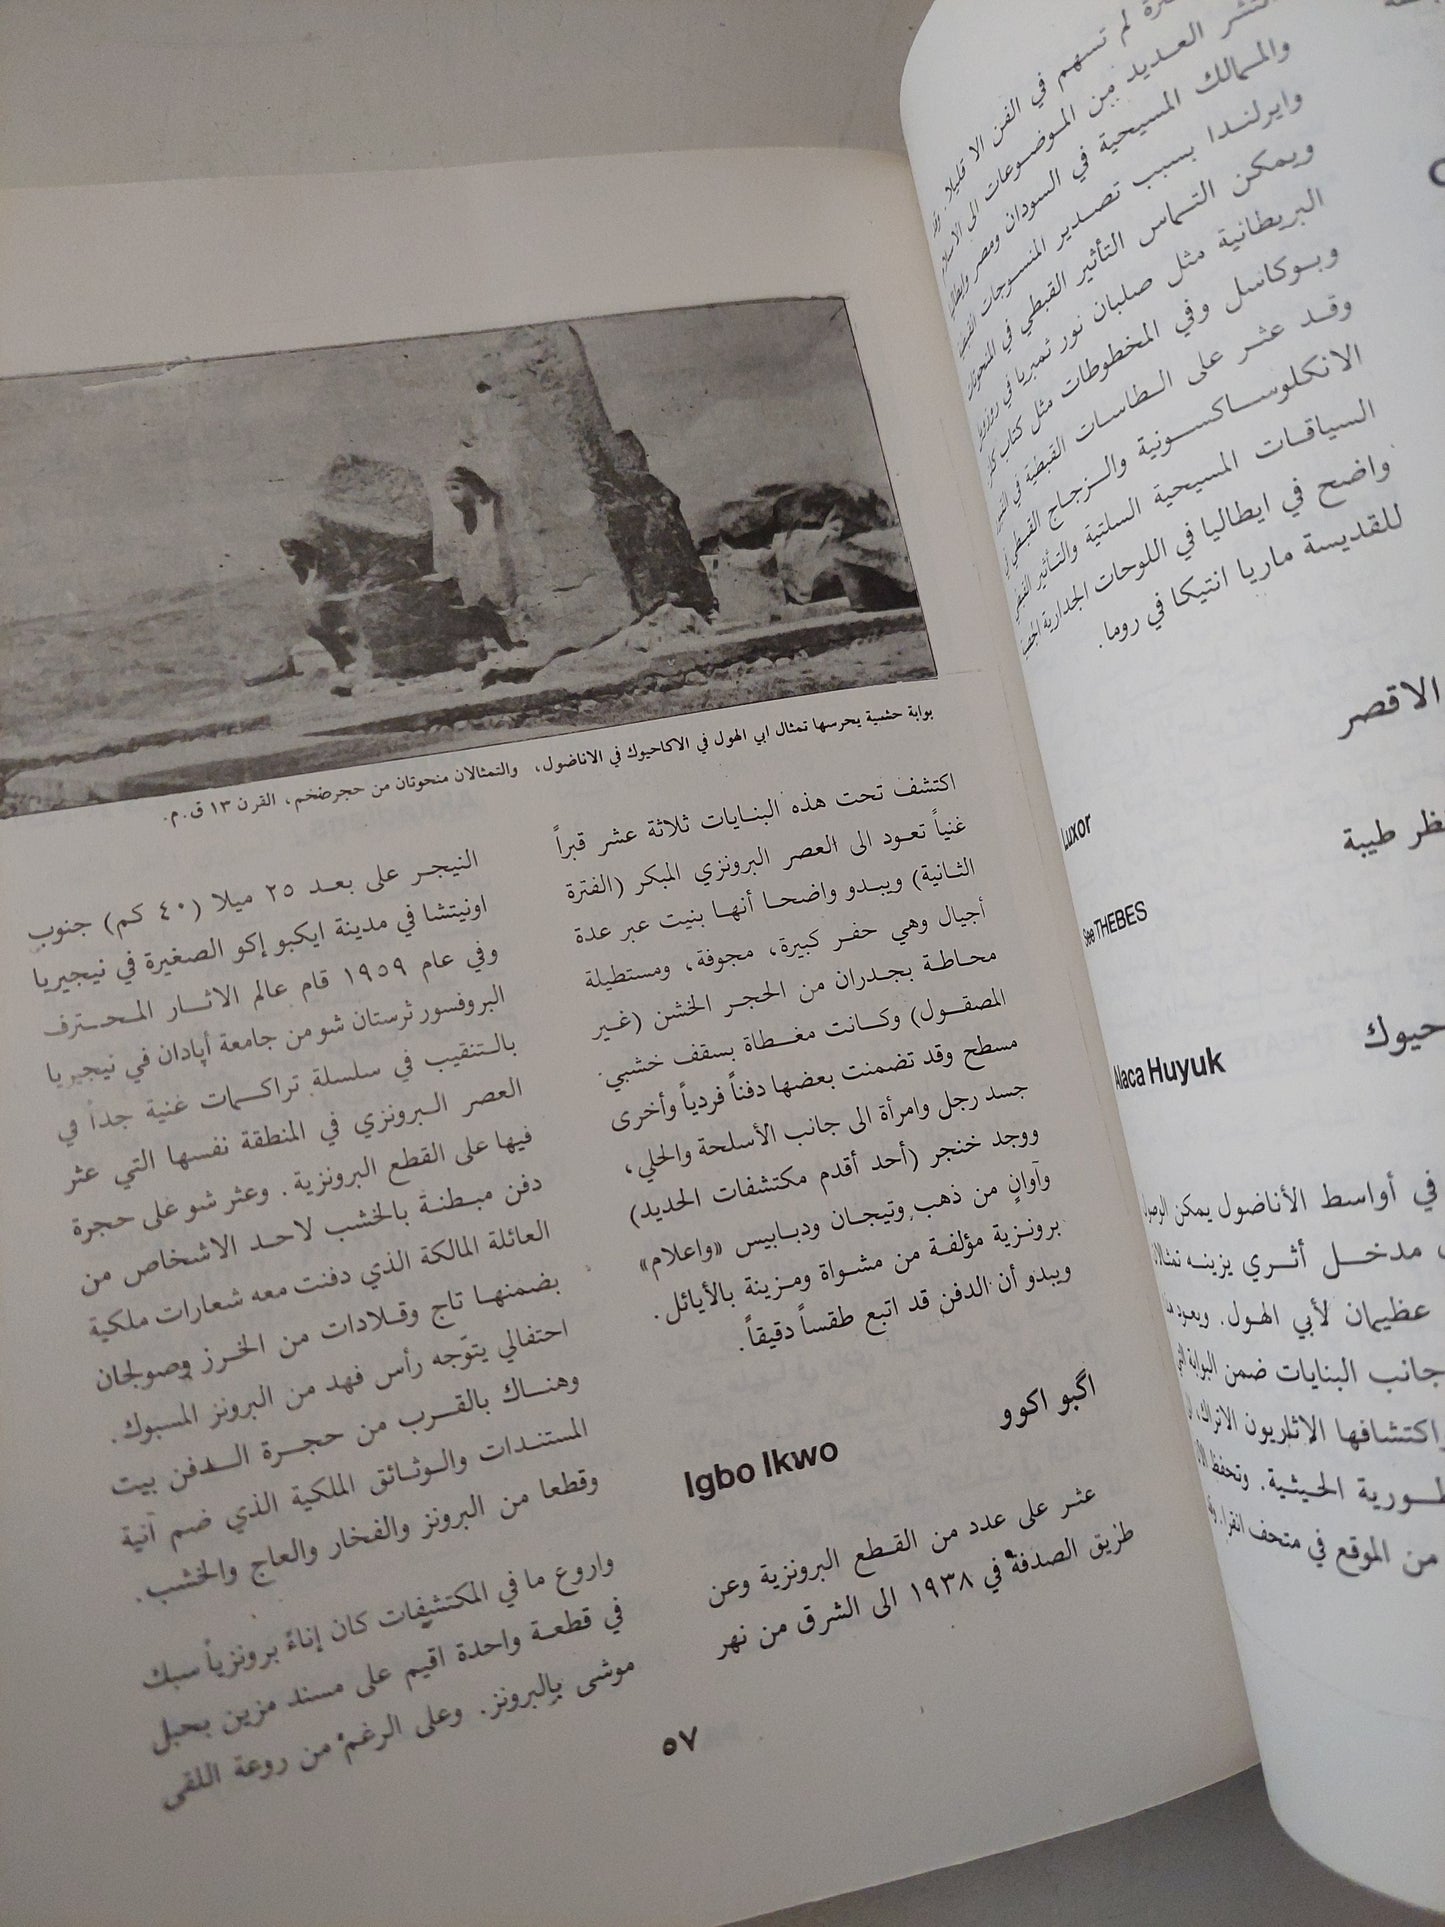 لم تسهم في الفن الا قليلا. وقد
انتشر العديد من الموضوعات الى الاسلام
والممالك المسيحية في السودان ومصر وايطاليا
وايرلندا بسبب تصدير المنسوجات القبطية
ويمكن التماس التأثير القبطي في المنحوتات
البريطانية مثل صلبان نور ثمبريا في
وبوكاسل وفي المخطوطات مثل كتاب كلز
وقد عثر على الطاسات القبطية في
الانكلوساكسونية والزجاج القبطي في
السياقات المسيحية السلتية والتأثير القبطي
واضح في ايطاليا في اللوحات الجدارية
للقديسة ماريا انتيكا في روما.
الاقصر
Luxor
طيبة
See THEBES
حيوك
Alaca Huyuk
في أواسط الأناضول يمكن الوصول
مدخل أثري يزينه
عظيمان لأبي الهول. ويعود
جانب البنايات ضمن البوابة التي
اكتشافها الاثاريون الاتراك،
الحيثية. وتحفظ
من الموقع في متحف انقرا.
بوابة حثمية يحرسها تمثال ابي الهول في الاكاحيوك في الاناضول، والتمثالان منحوتان من حجر ضخم، القرن ١٣ ق.م.
اكتشف تحت هذه البنايات ثلاثة عشر قبراً
غنياً تعود الى العصر البرونزي المبكر (الفترة
الثانية) ويبدو واضحا أنها بنيت عبر عدة
أجيال وهي حفر كبيرة، مجوفة، ومستطيلة
محاطة بجدران من الحجر الخشن (غير
المصقول) وكانت مغطاة بسقف خشبي
مسطح وقد تضمنت بعضها دفناً فردياً وأخرى
جسد رجل وامرأة الى جانب الأسلحة والحلي،
ووجد خنجر (أحد أقدم مكتشفات الحديد)
وآوانٍ من ذهب وتيجان ودبابيس «واعلام»
برونزية مؤلفة من مشواة ومزينة بالأيائل.
ويبدو أن الدفن قد اتبع طقساً دقيقاً.
اگبو اكوو
Igbo Ikwo
عثر على عدد من القطع البرونزية وعن
طريق الصدفة في ١٩٣٨ الى الشرق من نهر
النيجر على بعد ٢٥ ميلا (٤٠ كم) جنوب
اونيتشا في مدينة ايكبو إكو الصغيرة في نيجيريا
وفي عام ١٩٥٩ قام عالم الاثار المحترف
البروفسور ثرستان شو من جامعة أپادان في نيجيريا
بالتنقيب في سلسلة تراكمات غنية جداً في
العصر البرونزي في المنطقة نفسها التي عثر
فيها على القطع البرونزية. وعثر شو على حجرة
دفن مبطنة بالخشب لاحد الاشخاص من
العائلة المالكة الذي دفنت معه شعارات ملكية
بضمنها تاج وقلادات من الخرز وصولجان
احتفالي يتوّجه رأس فهد من البرونز المسبوك.
وهناك بالقرب من حجرة الدفن بيت
المستندات والوثائق الملكية الذي ضم آنية
وقطعا من البرونز والفخار والعاج والخشب.
واروع ما في المكتشفات كان إناءً برونزياً سبك
في قطعة واحدة اقيم على مسند مزين بحبل
موشى بالبرونز. وعلى الرغم من روعة اللقى
٥٧